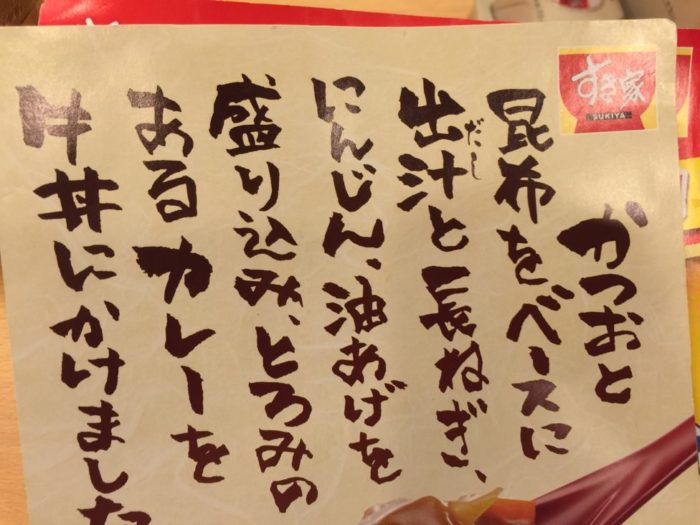 すき家
SUKIYA
かつおと
昆布をベースに
出汁と長ねぎ、
だし
にんじん、油あげを
盛り込み、とろみの
あるカレーを
牛丼にかけました